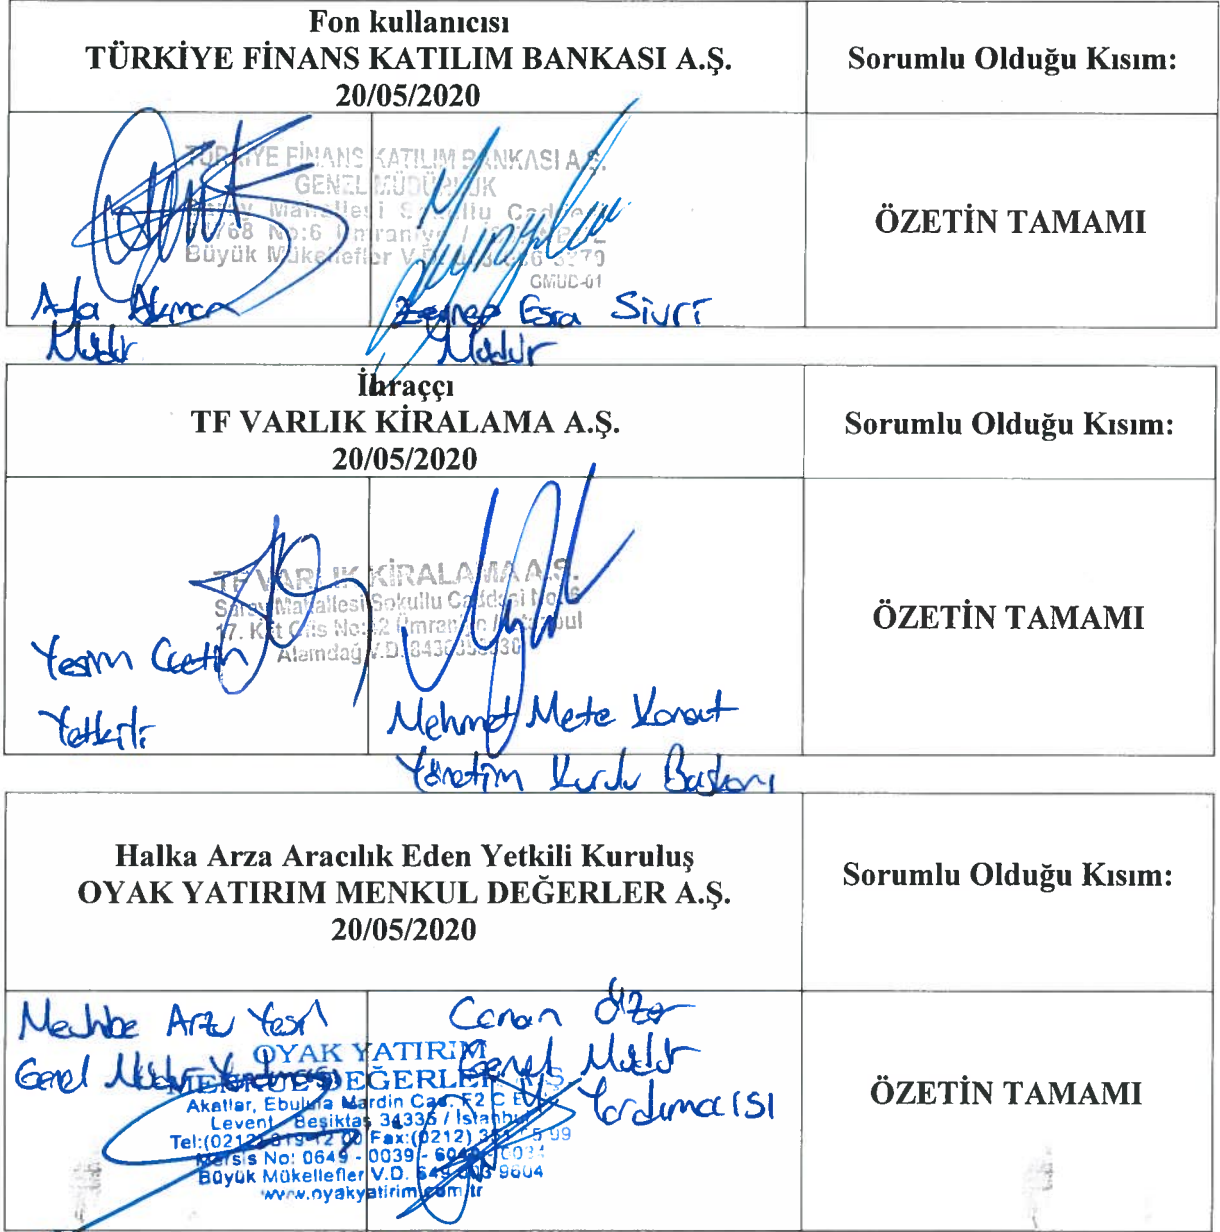 Fon kullanıcısı
TÜRKİYE FİNANS KATILIM BANKASI A.Ş.
20/05/2020
Sorumlu Olduğu Kısım:
TÜRKİYE FİNANS KATILIM BANKASI A.Ş.
GENEL MÜDÜRLÜK
Mahallesi
No:6 Ümraniye /
Büyük Mükellefler V.D.
GMUD-01
Müdür
Zeynep Esra Sivri
Müdür
ÖZETİN TAMAMI
İhraççı
TF VARLIK KİRALAMA A.Ş.
20/05/2020
Sorumlu Olduğu Kısım:
TF VARLIK KİRALAMA A.Ş.
Saray Mahallesi Sokullu Caddesi No:6
17. Kat Ofis No: Ümraniye / İstanbul
Alemdağ V.D.
Yeşim Çetin
Yetkili
Mehmet Mete
Yönetim Kurulu Başkanı
ÖZETİN TAMAMI
Halka Arza Aracılık Eden Yetkili Kuruluş
OYAK YATIRIM MENKUL DEĞERLER A.Ş.
20/05/2020
Sorumlu Olduğu Kısım:
Arzu Yeşil
Genel Müdür Yardımcısı
Canan Özer
Genel Müdür
Yardımcısı
OYAK YATIRIM
MENKUL DEĞERLER A.Ş.
Akatlar, Ebulula Mardin Cad. F2 C
Levent, Beşiktaş 34335 / İstanbul
Tel:(0212) 319 12 00 Fax:(0212)
Mersis No: 0649 - 0039 -
Büyük Mükellefler V.D. 649 003 9604
www.oyakyatirim.com.tr
ÖZETİN TAMAMI